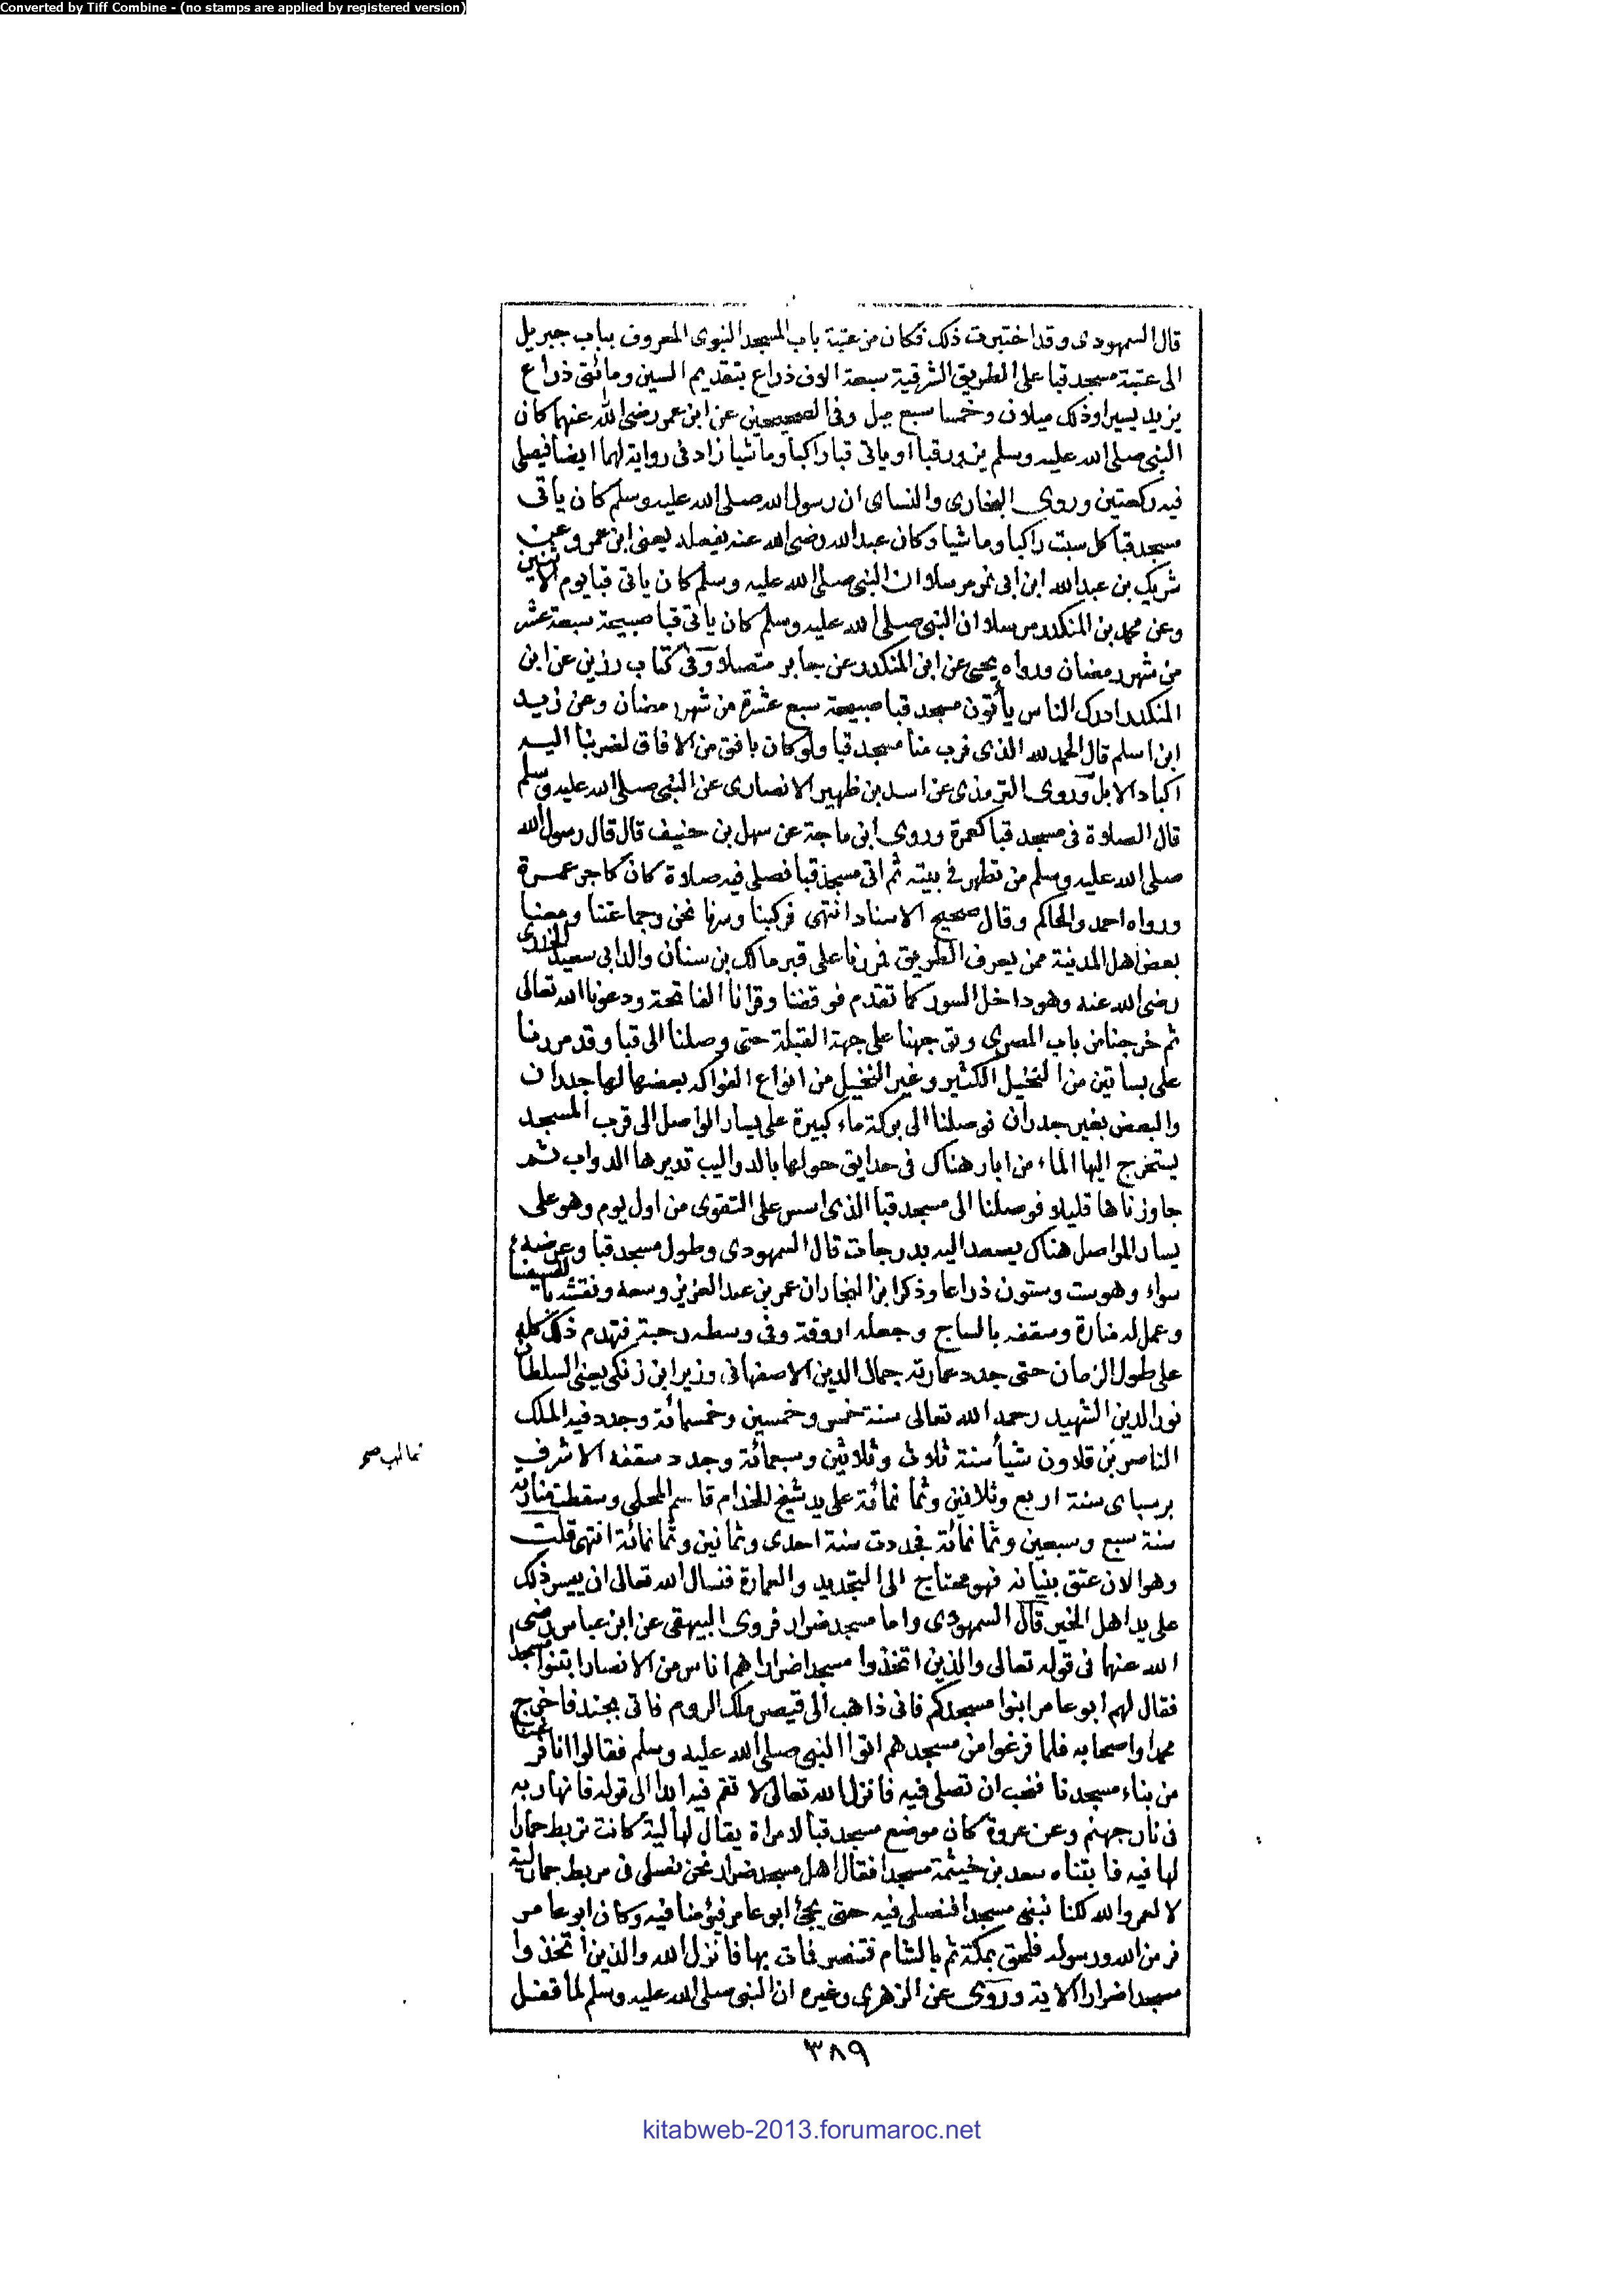 Converted by Tiff Combine - (no stamps are applied by registered version)
قال السمهودى وقد اختبرت ذلك فكان من عتبة باب المسجد النبوى المعروف بباب جبريل
الى عتبة مسجد قبا على الطريق الشرقية سبعة الاف ذراع بتقديم السين ومائتى ذراع
يزيد يسيرا وذلك ميلان وخمسا سبع ميل وفى الصحيحين عن ابن عمر رضى الله عنهما كان
النبى صلى الله عليه وسلم يزور قبا او ياتى قبا راكبا وماشيا زاد فى رواية لهما ايضا فيصلى
فيه ركعتين وروى البخارى والنساى ان رسول الله صلى الله عليه وسلم كان ياتى
مسجد قبا كل سبت راكبا وماشيا وكان عبد الله رضى الله عنه يفعله يعنى ابن عمر وعن
شريك بن عبد الله ابن ابى نمر مرسلا ان النبى صلى الله عليه وسلم كان ياتى قبا يوم الاثنين
وعن محمد بن المنكدر مرسلا ان النبى صلى الله عليه وسلم كان ياتى قبا صبيحة سبعة عشر
من شهر رمضان ورواه يحيى عن ابن المنكدر عن جابر متصلا وفى كتاب رزين عن ابن
المنكدر ادرك الناس يأتون مسجد قبا صبيحة سبع عشرة من شهر رمضان وعن زيد
ابن اسلم قال الحمد لله الذى قرب منا مسجد قبا ولو كان بافق من الافاق لضربنا اليه
اكباد الابل وروى الترمذى عن اسد بن ظهير الانصارى عن النبى صلى الله عليه وسلم
قال الصلاة فى مسجد قبا كعمرة وروى ابن ماجة عن سهل بن حنيف قال قال رسول الله
صلى الله عليه وسلم من تطهر فى بيته ثم اتى مسجد قبا فصلى فيه صلاة كان كاجر عمرة
ورواه احمد والحاكم وقال صحيح الاسناد انتهى فركبنا وسرنا نحن وجماعتنا ومعنا
بعض اهل المدينة ممن يعرف الطريق فمررنا على قبر مالك بن سنان والد ابى سعيد الخدرى
رضى الله عنه وهو داخل السور كما تقدم فوقفنا وقرانا الفاتحة ودعونا الله تعالى
ثم خرجنا من باب المصرى وتوجهنا على جهة القبلة حتى وصلنا الى قبا وقد مررنا
على بساتين من النخيل الكثير وغير النخيل من انواع الفواكه بعضها لها جدران
والبعض بغير جدران فوصلنا الى بركة ماء كبيرة على يسار الواصل الى قرب المسجد
يستخرج اليها الماء من ابار هناك فى حدايق حولها بالدواليب تديرها الدواب ثم
جاوزناها قليلا فوصلنا الى مسجد قبا الذى اسس على التقوى من اول يوم وهو على
يسار الواصل هناك يصعد اليه بدرجات قال السمهودى وطول مسجد قبا وعرضه
سواء وهو ست وستون ذراعا وذكر ابن النجار ان عمر بن عبد العزيز وسعه ونقشه بالفسيفسا
وعمل له منارة وسقفه بالساج وجعله اروقة وفى وسطه رحبة فتهدم ذلك كله
على طول الزمان حتى جدد عمارته جمال الدين الاصفهانى وزير ابن زنكى يعنى السلطان
نور الدين الشهيد رحمه الله تعالى سنة خمس وخمسين وخمسمائة وجدد فيه الملك
الناصر بن قلاون شيأ سنة ثلاث وثلاثين وسبعمائة وجدد سقفه الاشرف
برسباى سنة اربع وثلاثين وثمانمائة على يد شيخ الخدام قاسم المحلى وسقطت منارته
سنة سبع وسبعين وثمانمائة فجددت سنة احدى وثمانين وثمانمائة انتهى قلت
وهو الان عتق بنيانه فهو محتاج الى التجديد والعمارة فنسال الله تعالى ان ييسر ذلك
على يد اهل الخير قال السمهودى واما مسجد ضرار فروى البيهقى عن ابن عباس رضى
الله عنهما فى قوله تعالى والذين اتخذوا مسجدا ضرارا هم اناس من الانصار ابتنوا مسجدا
فقال لهم ابو عامر ابنوا مسجدكم فانى ذاهب الى قيصر ملك الروم فاتى بجند فاخرج
محمدا واصحابه فلما فرغوا من مسجدهم اتوا النبى صلى الله عليه وسلم فقالوا انا فرغنا
من بناء مسجدنا فنحب ان تصلى فيه فانزل الله تعالى لا تقم فيه ابدا الى قوله فانهار به
فى نار جهنم وعن عروة كان موضع مسجد قبا لامراة يقال لها لية كانت تربط حمارا
لها فيه فابتناه سعد بن خيثمة مسجدا فقال اهل مسجد ضرار نحن نصلى فى مربط حمار لية
لا لعمر الله لكنا نبنى مسجدا فنصلى فيه حتى يجئ ابو عامر فيؤمنا فيه وكان ابو عامر
فر من الله ورسوله فلحق بمكة ثم بالشام فتنصر فمات بها فانزل الله والذين اتخذوا
مسجدا ضرارا الاية وروى عن الزهرى وغيره ان النبى صلى الله عليه وسلم لما قفل
٣٨٩
kitabweb-2013.forumaroc.net